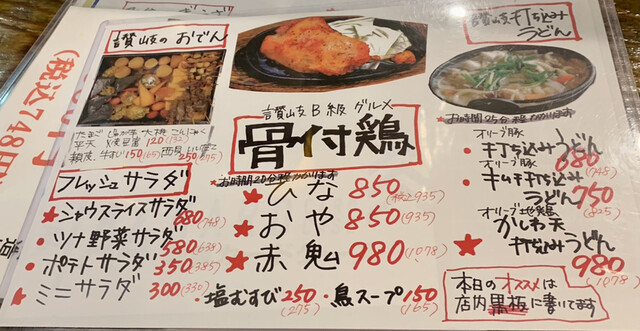 讃岐のおでん
たまご しらたき 大根 こんにゃく
平天 焼豆腐 120(132)
類 牛すじ150(165) 250(275)
フレッシュサラダ
★シャウスライスサラダ
680(748)
・ツナ野菜サラダ
580(638)
・ポテトサラダ 350(385)
★ミニサラダ 300(330)
讃岐B級グルメ
骨付鶏
お時間20分程かかります
★ひな 850(税込935)
おや 850(935)
★赤鬼 980(1078)
・塩むすび250(275)
・鳥スープ150(165)
讃岐打ち込み
うどん
お時間25分程かかります
オリーブ豚
★打ち込みうどん
680(748)
オリーブ豚
・キムチ打ち込み
うどん 750(825)
オリーブ地鶏
かしわ天
★打ち込みうどん
980(1078)
本日のオススメは
店内黒板に書いてます
(税込748円